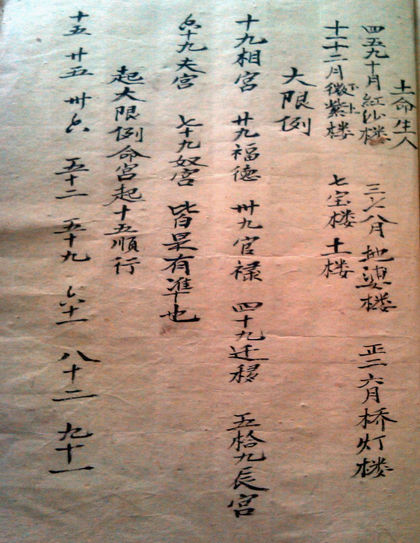 土命生人
四五九十月紅沙楼 三七八月地婆楼 正二六月桥灯楼
十一十二月微紫楼 七宝楼 土楼
下卦
大限例
十九相宫 廿九福德 卅九官禄 四十九迁移 五拾九长宫
六十九夫宫 七十九奴宫 皆是有準也
起大限例命宫起十五順行
十五 廿五 卅六 五十二 五十九 六十一 八十二 九十一